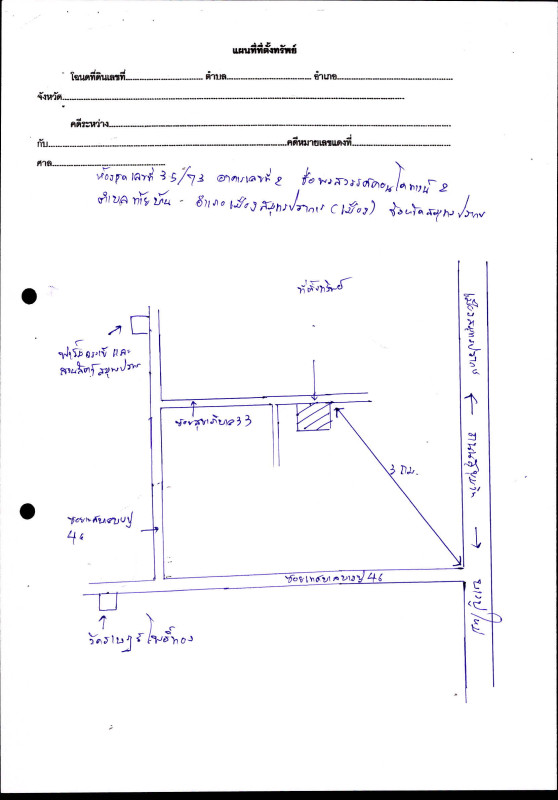 แผนที่ที่ตั้งทรัพย์
โฉนดที่ดินเลขที่.............................. ตำบล.............................. อำเภอ..............................
จังหวัด..............................
คดีระหว่าง..............................
กับ..............................คดีหมายเลขแดงที่..............................
ศาล..............................
ห้องชุดเลขที่ 35/73 อาคารเลขที่ 2 ชื่อพรสวรรค์คอนโดทาวน์ 2
ตำบลท้ายบ้าน - อำเภอเมืองสมุทรปราการ (เมือง) จังหวัดสมุทรปราการ
ที่ตั้งทรัพย์
เมืองสมุทรปราการ
ฟาร์มจระเข้ และ
สวนสัตว์สมุทรปราการ
ซอยสุขาภิบาล 33
3 กม.
ถนนสุขุมวิท
ซอยเทศบาลบางปู
46
ซอยเทศบาลบางปู 46
บางปูใหม่
วัดราษฎร์โพธิ์ทอง